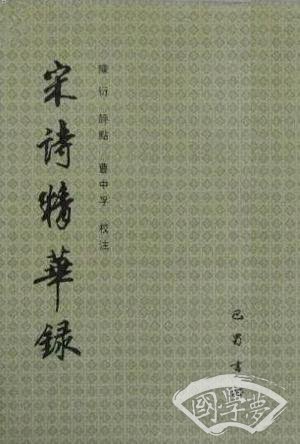 宋詩精華録
陳衍 評點 曹中孚 校注
巴蜀書
國學夢